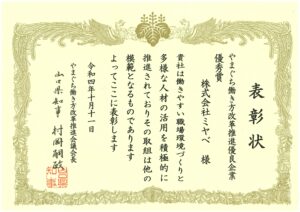 表彰状
やまぐち働き方改革推進優良企業
優秀賞
株式会社ミヤベ 様
貴社は働きやすい職場環境づくりと
多様な人材の活用を積極的に
推進されておりその取組は他の
模範となるものであります
よってここに表彰します
令和四年十月十一日
やまぐち働き方改革推進会議会長
山口県知事 村岡嗣政